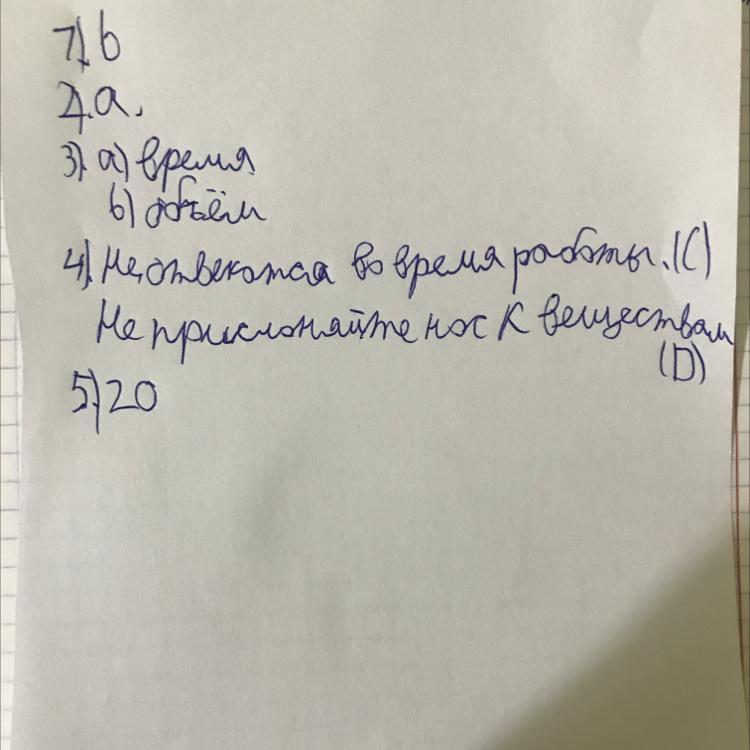 1). b
2). a.
3). а) время
b) объём
4). Не отвекотся во время работы. (C)
Не прислоняйте нос к веществам
(D)
5) 20